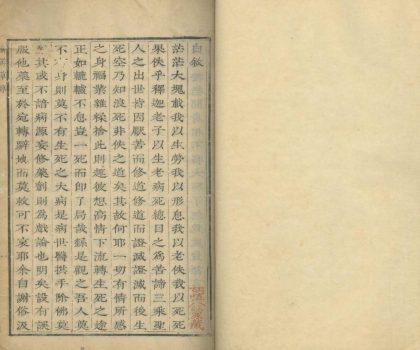 自敘
茫茫大塊載我以生勞我以形息我以死死
果佚乎釋迦老子以生老病死總目之為苦諦三乘聖
人之出世皆因厭苦而修道修道而證滅證滅而後生
死空乃知浪死非佚之道矣其故何耶一切有情所感
之身福業雜糅捨此則趣彼想高情下流轉生死之途
正如轆轤不息豈一死而卽了局哉繇是觀之吾人莫
不有身則莫不有生死之大病是病世醫拱手除佛莫
其或不諳病源妄修藥劑則為戲論也明矣設有誤
服他藥至於宛轉辭城而莫救可不哀耶余自謝俗汲